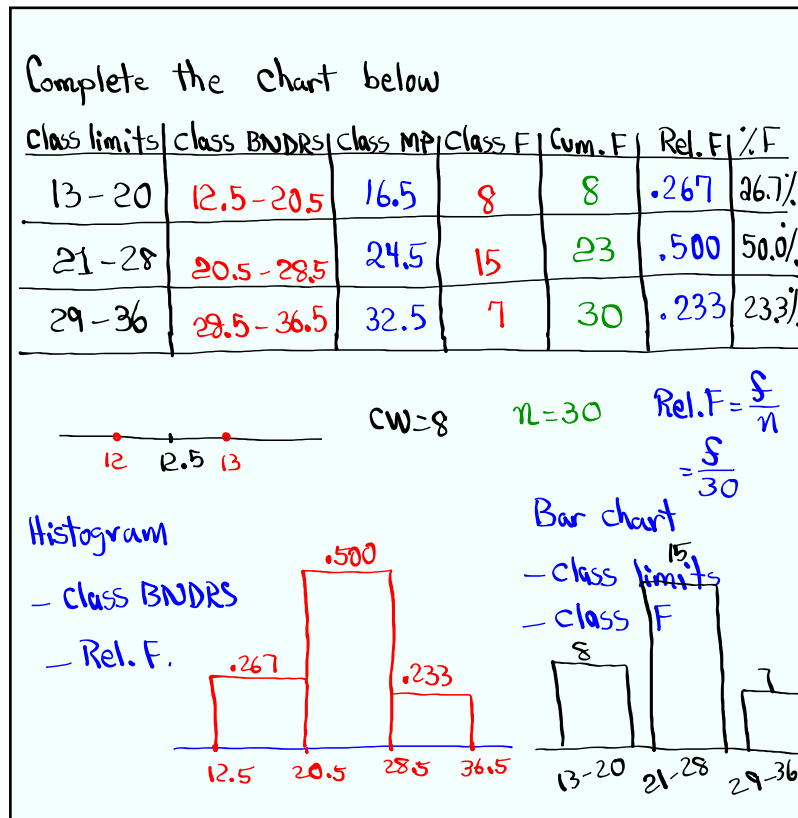 Complete the chart below
Class limits | Class BNDRS | Class MP | Class F | Cum. F | Rel. F | % F
13-20 12.5-20.5 16.5 8 8 .267 26.7%
21-28 20.5-28.5 24.5 15 23 .500 50.0%
29-36 28.5-36.5 32.5 7 30 .233 23.3%
CW=8 n=30 Rel.F = f/n
12 12.5 13
= f/30
Histogram
- Class BNDRS
- Rel. F.
.267 .500 .233
12.5 20.5 28.5 36.5
Bar chart
- Class limits
- Class F
8 15 7
13-20 21-28 29-36